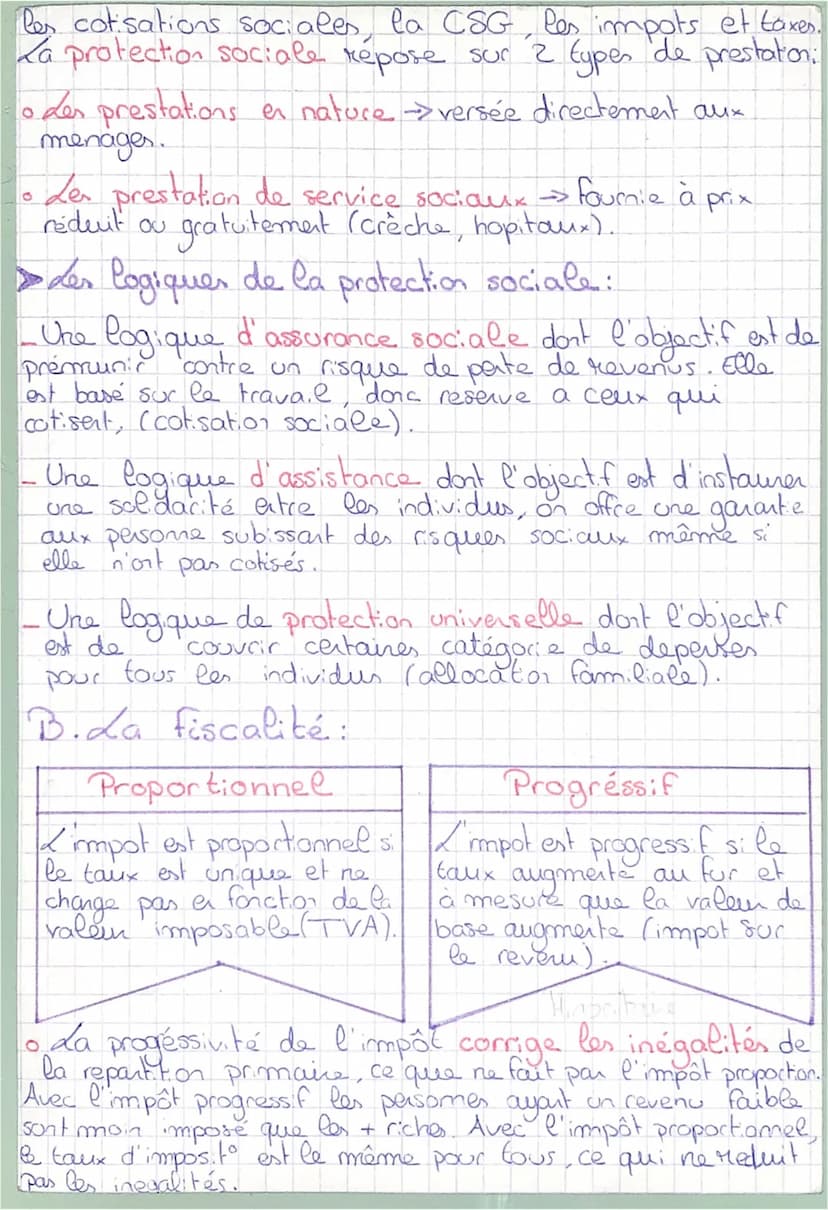 les cotisations sociales, la CSG, les impots et taxes.
La protection sociale repose sur 2 types de prestation:
o Les prestations en nature → versée directement aux
menages.
o Les prestation de service sociaux → fournie à prix
réduit ou gratuitement (crèche, hopitaux).
➤ Les logiques de la protection sociale:
- Une logique d'assurance sociale dont l'objectif est de
prémunir contre un risque de perte de revenus. Elle
est basé sur le travail, donc reserve a ceux qui
cotisent, (cotisation sociale).
- Une logique d'assistance dont l'objectif est d'instaurer
une soldacité entre les individus, on offre une garantie
aux personne subissant des risques sociaux même si
elle n'ont pas cotisés.
- Une logique de protection universelle dont l'objectif
est de couvrir certaines catégorie de depenses
pour tous les individus (allocation familiale).
B. La fiscalité:
Proportionnel
L'impot est proportionnel si
le taux est unique et ne
change pas en fonction de la
valeur imposable (TVA).
Progréssif
L'impot est progressif si le
taux augmente au fur et
à mesure que la valeur de
base augmente (impot sur
le revenu).
o La progéssivité de l'impôt corrige les inégalités de
la repartition primaire, ce que ne fait pas l'impôt proportion.
Avec l'impôt progressif les personnes ayant un revenu faible
sont moin imposé que les + riches. Avec l'impôt proportionnel,
le taux d'imposit° est le même pour tous, ce qui ne reduit
pas les inegalités.